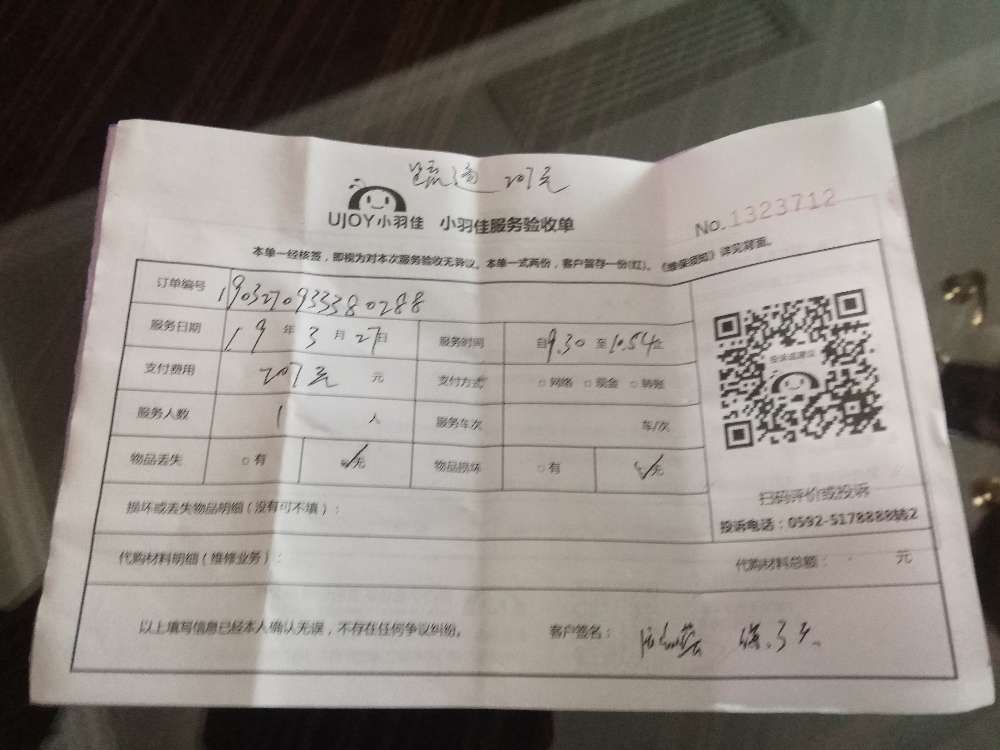 管疏通 207元
UJOY小羽佳 小羽佳服务验收单
No.1323712
本单一经核签，即视为对本次服务验收无异议。本单一式两份，客户暂存一份(红)。《维保须知》详见背面。
订单编号 190327093338 0288
服务日期 19 年 3 月 27日 服务时间 自9.30 至10.54止
支付费用 207元 元 支付方式 网络 现金 转账
服务人数 1 人 服务车次 车/次
物品丢失 有 无 物品损坏 有 无
投诉或建议
扫码评价或投诉
投诉电话：0592-5178888转2
损坏或丢失物品明细（没有可不填）：
代购材料明细（维修业务）： 代购材料总额： 元
以上填写信息已经本人确认无误，不存在任何争议纠纷。 客户签名：